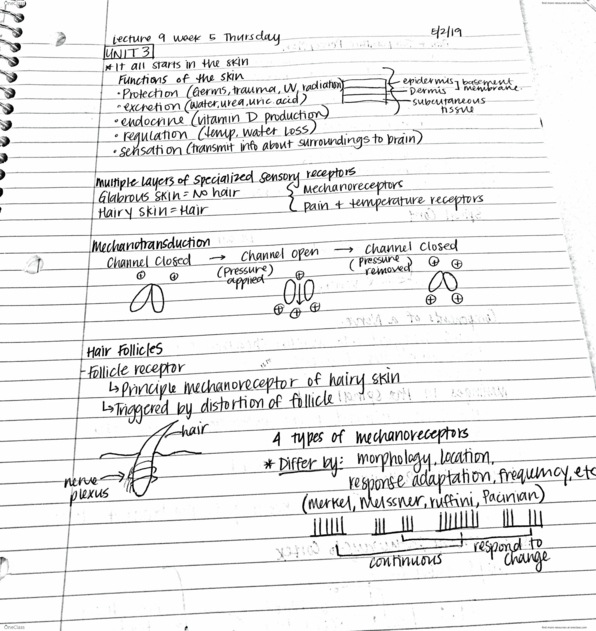 Lecture 9 week 5 Thursday 5/2/19
UNIT 3
* It all starts in the skin
Functions of the skin
• Protection (Germs, trauma, UV, radiation)
• excretion (water, urea, uric acid)
• endocrine (vitamin D production)
• regulation (temp, water loss)
• sensation (transmit info about surroundings to brain)
epidermis
Dermis
basement
membrane
subcutaneous
tissue
Multiple Layers of Specialized Sensory receptors
Glabrous skin = No hair
Hairy skin = Hair
Mechanoreceptors
Pain + temperature receptors
Mechanotransduction
Channel Closed → Channel open → Channel Closed
(Pressure)
applied
(Pressure)
removed
⊕ ⊕
⊕
⊕ ⊕
⊕ ⊕ ⊕
⊕ ⊕
Hair Follicles
- Follicle receptor
↳ Principle mechanoreceptor of hairy skin
↳ Triggered by distortion of follicle
hair
nerve
plexus
4 types of mechanoreceptors
* Differ by: morphology, location,
response adaptation, frequency, etc
(merkel, Meissner, ruffini, Pacinian)
continuous
respond to
change
OneClass